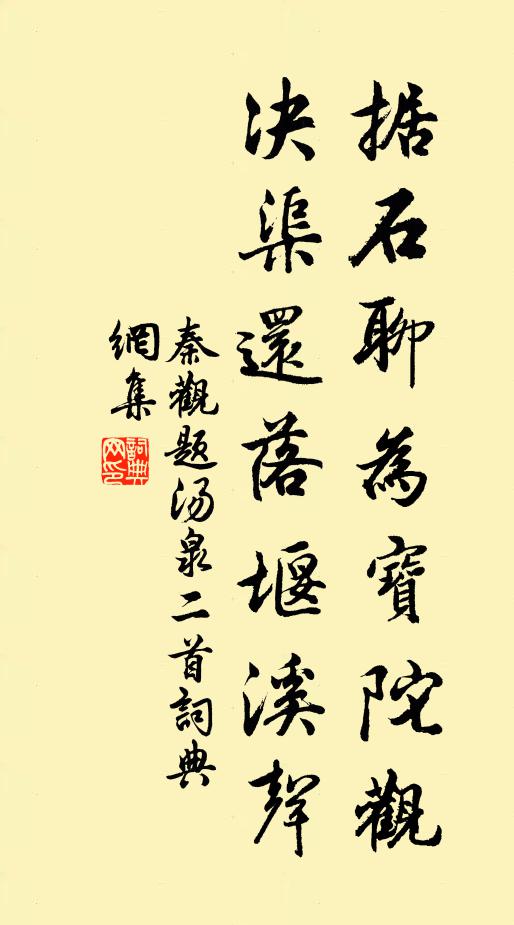 据石聊為寶陀觀
決渠還落堰溪聲
秦觀題汤泉二首詞典
網集
詞典
网印